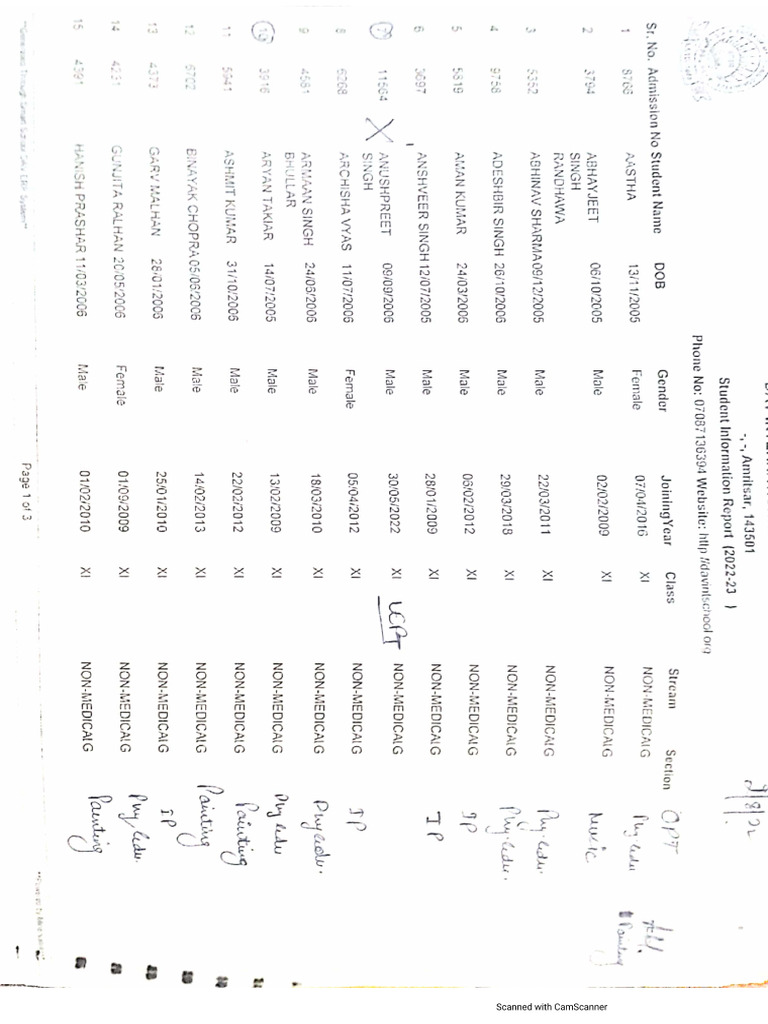 -,-, Amritsar, 143501
Student Information Report (2022-23 )
Phone No: 07087136394 Website: http://davintschool.org
2/8/22
Sr. No. Admission No Student Name DOB Gender JoiningYear Class Stream Section OPT
1 8766 AASTHA 13/11/2005 Female 07/04/2016 XI NON-MEDICAL G Phy. Edu Painting
2 3794 ABHAYJEET SINGH RANDHAWA 06/10/2005 Male 02/02/2009 XI NON-MEDICAL G Music
3 5352 ABHINAV SHARMA 09/12/2005 Male 22/03/2011 XI NON-MEDICAL G Phy. Edu.
4 9758 ADESHBIR SINGH 26/10/2006 Male 29/03/2018 XI NON-MEDICAL G Phy. Edu.
5 5819 AMAN KUMAR 24/03/2006 Male 06/02/2012 XI NON-MEDICAL G IP
6 3697 ANSHVEER SINGH 12/07/2005 Male 28/01/2009 XI NON-MEDICAL G IP
7 11564 X ANUSHPREET SINGH 09/09/2006 Male 30/05/2022 XI NON-MEDICAL G
8 6268 ARCHISHA VYAS 11/07/2006 Female 05/04/2012 XI NON-MEDICAL G IP
9 4561 ARMAAN SINGH BHULLAR 24/06/2006 Male 18/03/2010 XI NON-MEDICAL G Phy edu.
10 3916 ARYAN TAKIAR 14/07/2005 Male 13/02/2009 XI NON-MEDICAL G Phy edu
11 5941 ASHMIT KUMAR 31/10/2006 Male 22/02/2012 XI NON-MEDICAL G Painting
12 6702 BINAYAK CHOPRA 05/06/2006 Male 14/02/2013 XI NON-MEDICAL G Painting
13 4373 GARV MALHAN 28/01/2006 Male 25/01/2010 XI NON-MEDICAL G IP
14 4231 GUNJITA RALHAN 20/05/2006 Female 01/09/2009 XI NON-MEDICAL G Phy edu.
15 4391 HANISH PRASHAR 11/03/2006 Male 01/02/2010 XI NON-MEDICAL G Painting
Page 1 of 3
Scanned with CamScanner